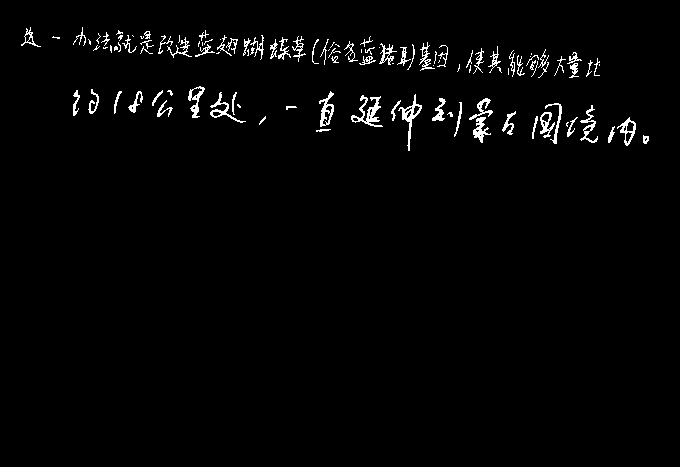 这一办法就是改造蓝翅蝴蝶草(俗名蓝猪耳)基因,使其能够大量比
约18公里处,一直延伸到蒙古国境内。